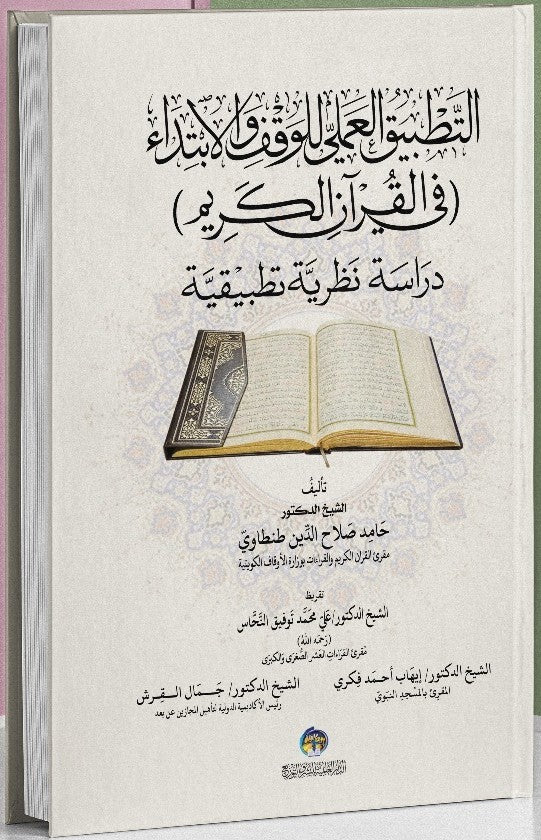 التَّطْبِيقُ العَمَلِيّ لِلوَقْفِ وَالابْتِدَاء
(فِي القُرْآنِ الكَرِيمِ)
دِرَاسَة نَظَرِيَّة تَطْبِيْقِيَّة
تأليفُ
الشيخ الدكتور
حَامِد صَلاح الدِّين طنطاويّ
مقرئ القرآن الكريم والقراءات بوزارة الأوقاف الكويتية
تقريظ
الشيخ الدكتور/ عَليّ محَمَّد تَوفيق النَّحَّاس
(رَحمَه اللهُ)
مُقرئ القرَاءاتِ العَشر الصُّغرَى وَالكبرَى
الشيخ الدكتور/ إيهَاب أحمَد فِكري
المقرئ بالمَسْجدِ النبَويّ
الشيخ الدكتور/ جَـمَال الـقِـرش
رئيس الأكاديمية الدولية لتأهيل المجازين عن بعد